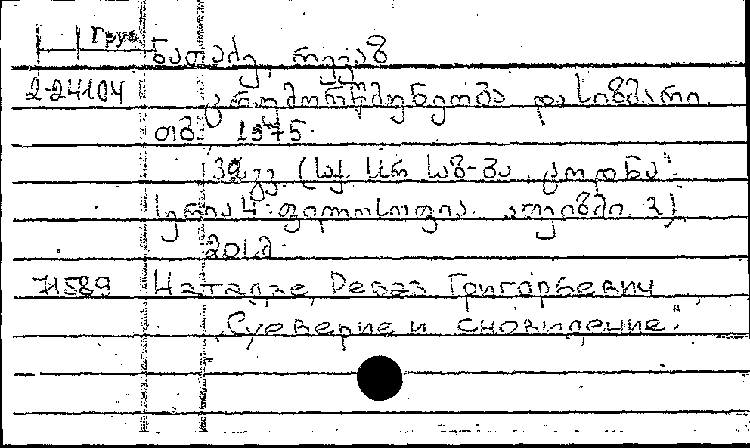 Груз
ნათაძე, რევაზ
2-24104 ცრუმორწმუნეობა და სიზმარი.
თბ. 1975.
32 გვ. (საქ. სსრ საზ-ბა „ცოდნა".
სერია 4. ფილოსოფია.
20კ.
71589 Натадзе, Реваз Григорьевич
„Суеверие и сновидение".